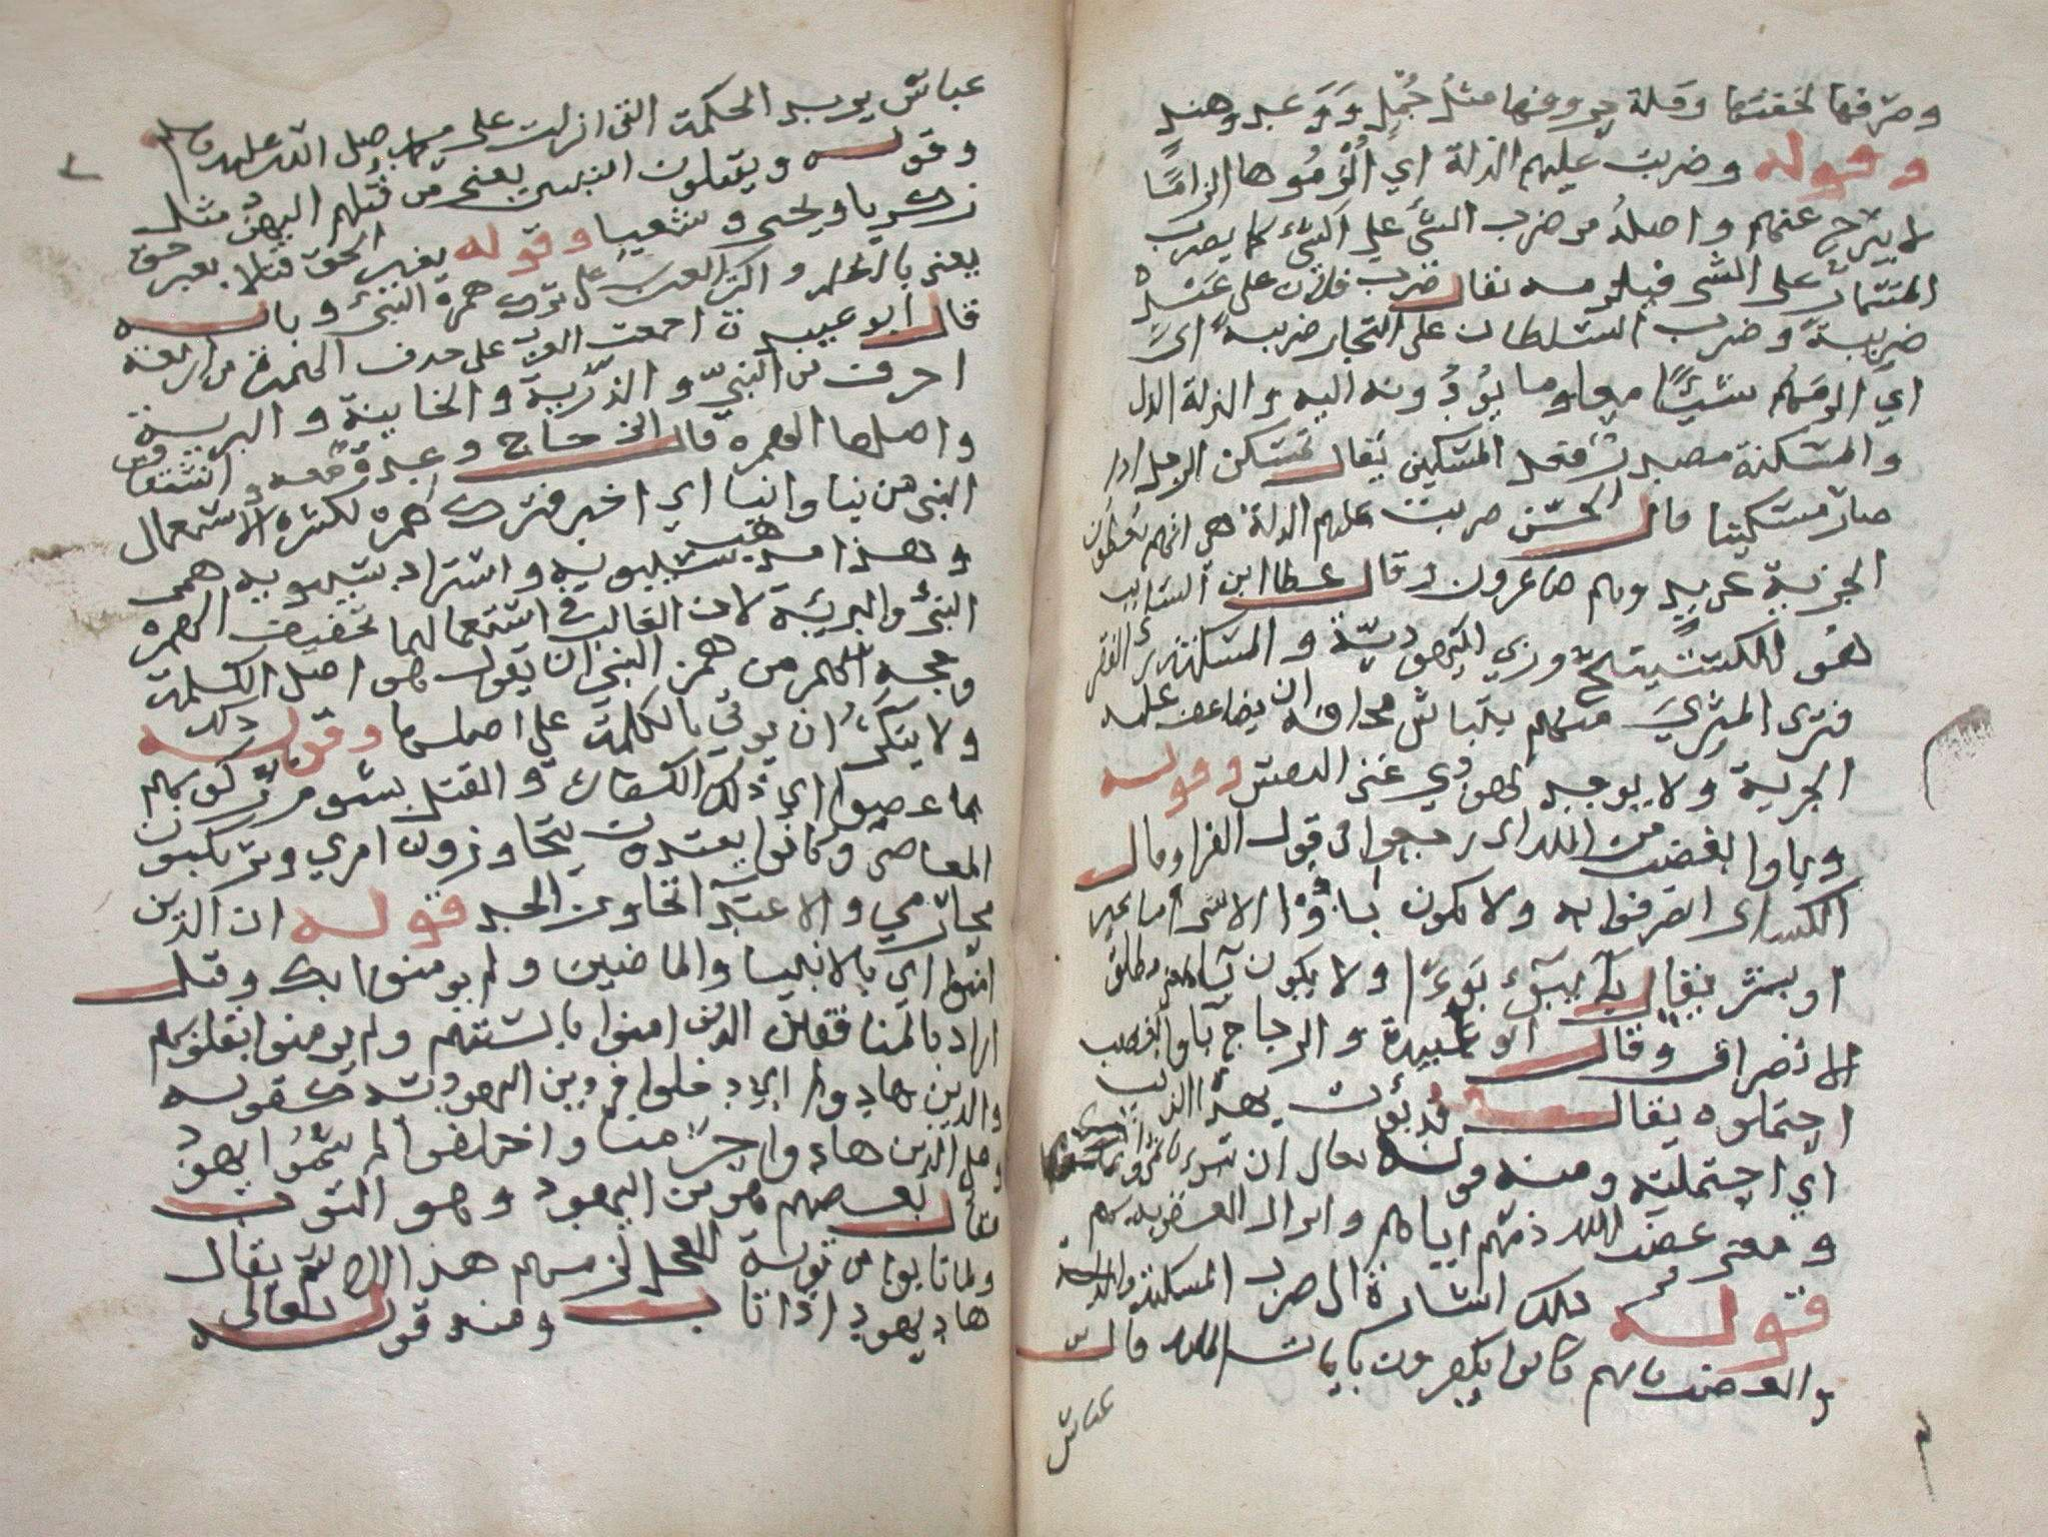 وصرفها لخفتها وقلة حروفها مثل جُمْلٍ ودَعدٍ وهندٍ
وقوله وضربت عليهم الذلة اي اُلْزِمُوها الزامًا
لا يبرح عنهم واصله من ضرب الشي علي الشي كما يضرب
المسمار على الشي فيلزمه يقال ضرب فلان على عبده
ضريبةً وضرب السلطان على التجار ضريبةً اي
اي الزمهم شيئًا معلوما يؤدونه اليه والذلة الذل
والمسكنة مصدر فعل المسكين يقال تمسكن الرجل اذا
صار مسكينا قال الحسن ضربت عليهم الذلة هي انهم يعطون
الجزية عن يدٍ وهم صاغرون وقال عطا ابن السايب
هو الكستيتج وزي اليهودية والمسكنة زي الفقر
فتري المثري منهم يتباس مخافة ان يضاعف عليه
الجزية ولا يوجد يهودي غني النفس وقوله
وباوا بغضب من الله اي رجعوا في قول الفرا وقال
الكساي انصرفوا به ولا يكون باؤا الا بشي اما بخير
او بشر يقال باء يبوء بَوءًا ولا يكون باء بمعنى مطلق
الانصراف وقال ابو عبيدة والزجاج باوا بغضب
احتملوه يقال قد بؤت بهذا الذنب
اي احتملته ومنه قوله تعالى ان تبوء باثمي واثمك
ومعنى غضب الله ذمهم اياهم وانزال العقوبه بهم
قوله ذلك اشارة الى ضرب المسكنة والذلة
والغضب بانهم كانوا يكفرون بايات الله قال ابن
عباس
عباس يريد الحكمة التي انزلت على محمد صلى الله عليه وسلم
وقوله ويقتلون النبيين يعني من قتلهم اليهود مثل
زكريا ويحيى وشعيا وقوله بغير الحق قتلا بغير حق
يعني بالظلم واكثر العرب على ترك همزة النبي وبابه
قال ابو عبيدة اجمعت العرب على حذف الهمزة من اربعة
احرف من النبيّ والذّرية والخابية والبرية
واصلها الهمزه قال الزجاج وعدة معه اشتقاق
النبي من نبا وانبا اي اخبر فترك همزه لكثرة الاستعمال
وهذا مذهب سيبويه واستراد سيبويه همز
النبئ والبريئة لان الغالب في استعمالها تخفيف الهمزه
وحجة من همز النبي ان يقول هو اصل الكلمة
ولا ينكر ان يوتي بالكلمة على اصلها وقوله ذلك
بما عصوا اي ذلك الكفر والقتل بشوم ركوبهم
المعاصي وكانوا يعتدون يتجاوزون امري ويرتكبون
محارمي والاعتدا تجاوز الحد قوله ان الذين
امنوا اي بالانبيا والماضين ولم يومنوا بك وقيل
اراد بالمنافقين الذين امنوا بالسنتهم ولم يومنوا بقلوبهم
والذين هادوا اي دخلوا في دين اليهودية كقوله
وعلى الذين هادوا حرّمنا واختلفوا لم سُمّوا يهود
فقال بعضهم هو من اليهود وهو التوب
ولما تابوا من توبة العجل لزمهم هذا الاسم يقال
هاد يهود اذا تاب ومنه قوله تعالى